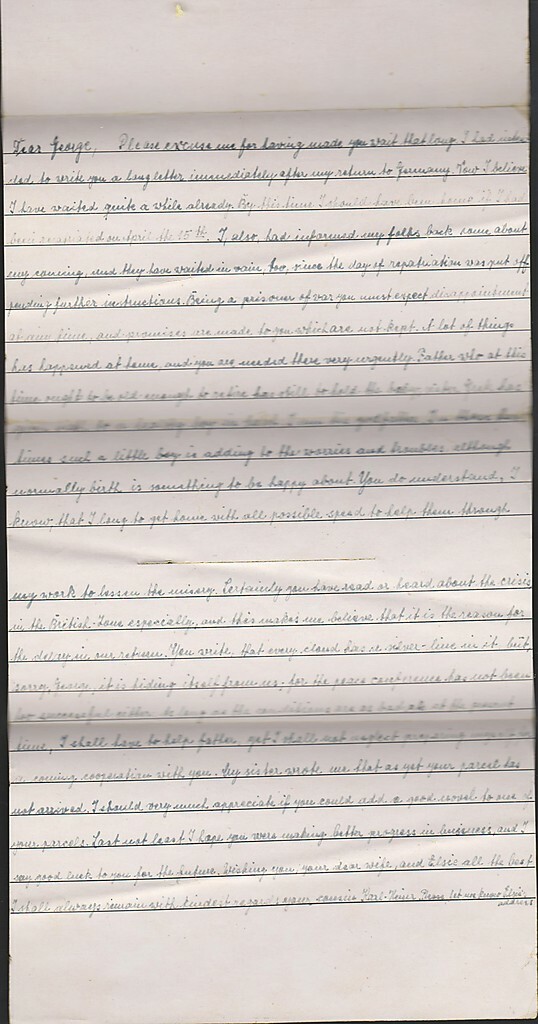 Dear George, Please excuse me for having made you wait that long. I had inten-
ded to write you a long letter immediately after my return to Germany. Now I believe
I have waited quite a while already. By this time I should have been home if I had
been repatriated on April the 15th. I, also, had informed my folks back home about
my coming, and they have waited in vain, too, since the day of repatriation was put off
pending further instructions. Being a prisoner of war you must expect disappointment
at any time, and promises are made to you which are not kept. A lot of things
has happened at home, and you are needed there very urgently. Father who at this
time ought to be old enough to retire has still to hold the baby. sister has
I am the godfather. In these
times such a little boy is adding to the worries and troubles although
normally birth is something to be happy about. You do understand, I
know, that I long to get home with all possible speed to help them through
my work to lessen the misery. Certainly you have read or heard about the crisis
in the British-Zone especially, and this makes me believe that it is the reason for
the delay in our return. You write, that every cloud has a silver-line in it, but,
sorry, George, it is hiding itself from us - for the peace conference has not been
too successful either. As long as the conditions are as bad as at the present
time, I shall have to help father, yet I shall not neglect preparing myself
coming cooperation with you. My sister wrote me that as yet your parcel has
not arrived. I should very much appreciate if you could add a good novel to one of
your parcels. Last not least I hope you were making better progress in business, and I
say good luck to you for the future. Wishing you, your dear wife, and Elsie all the best
I shall always remain with kindest regards your cousin Karl-Heinz Let me know Elsie's
address